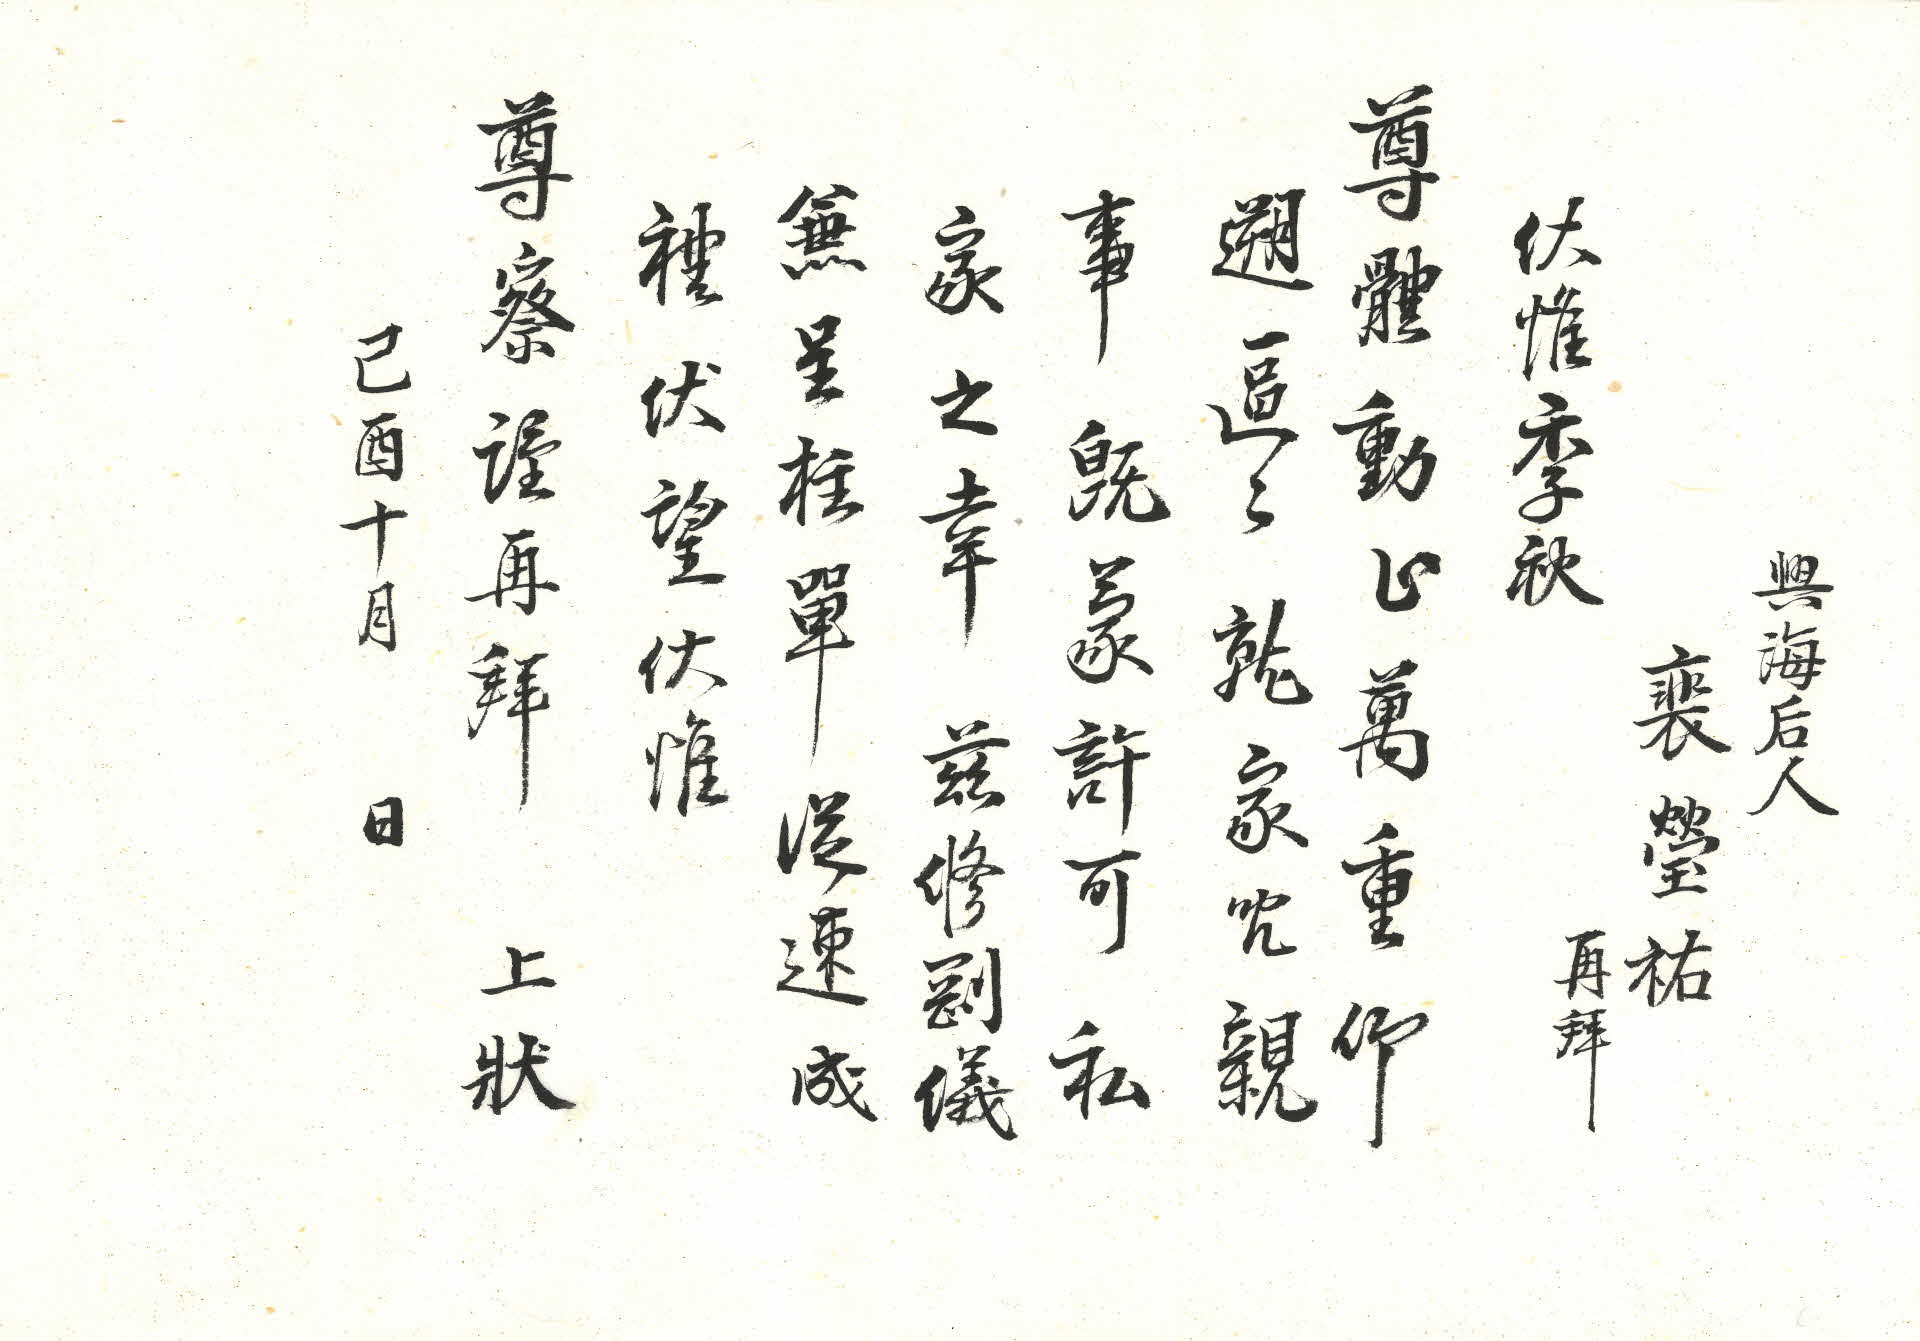 興海后人
裵瑩祐
再拜
伏惟季秋
尊體動止萬重仰
遡區〻就家兒親
事旣蒙許可私
家之幸玆修剛儀
兼呈柱單從速成
禮伏望伏惟
尊察謹再拜 上狀
己酉十月 日